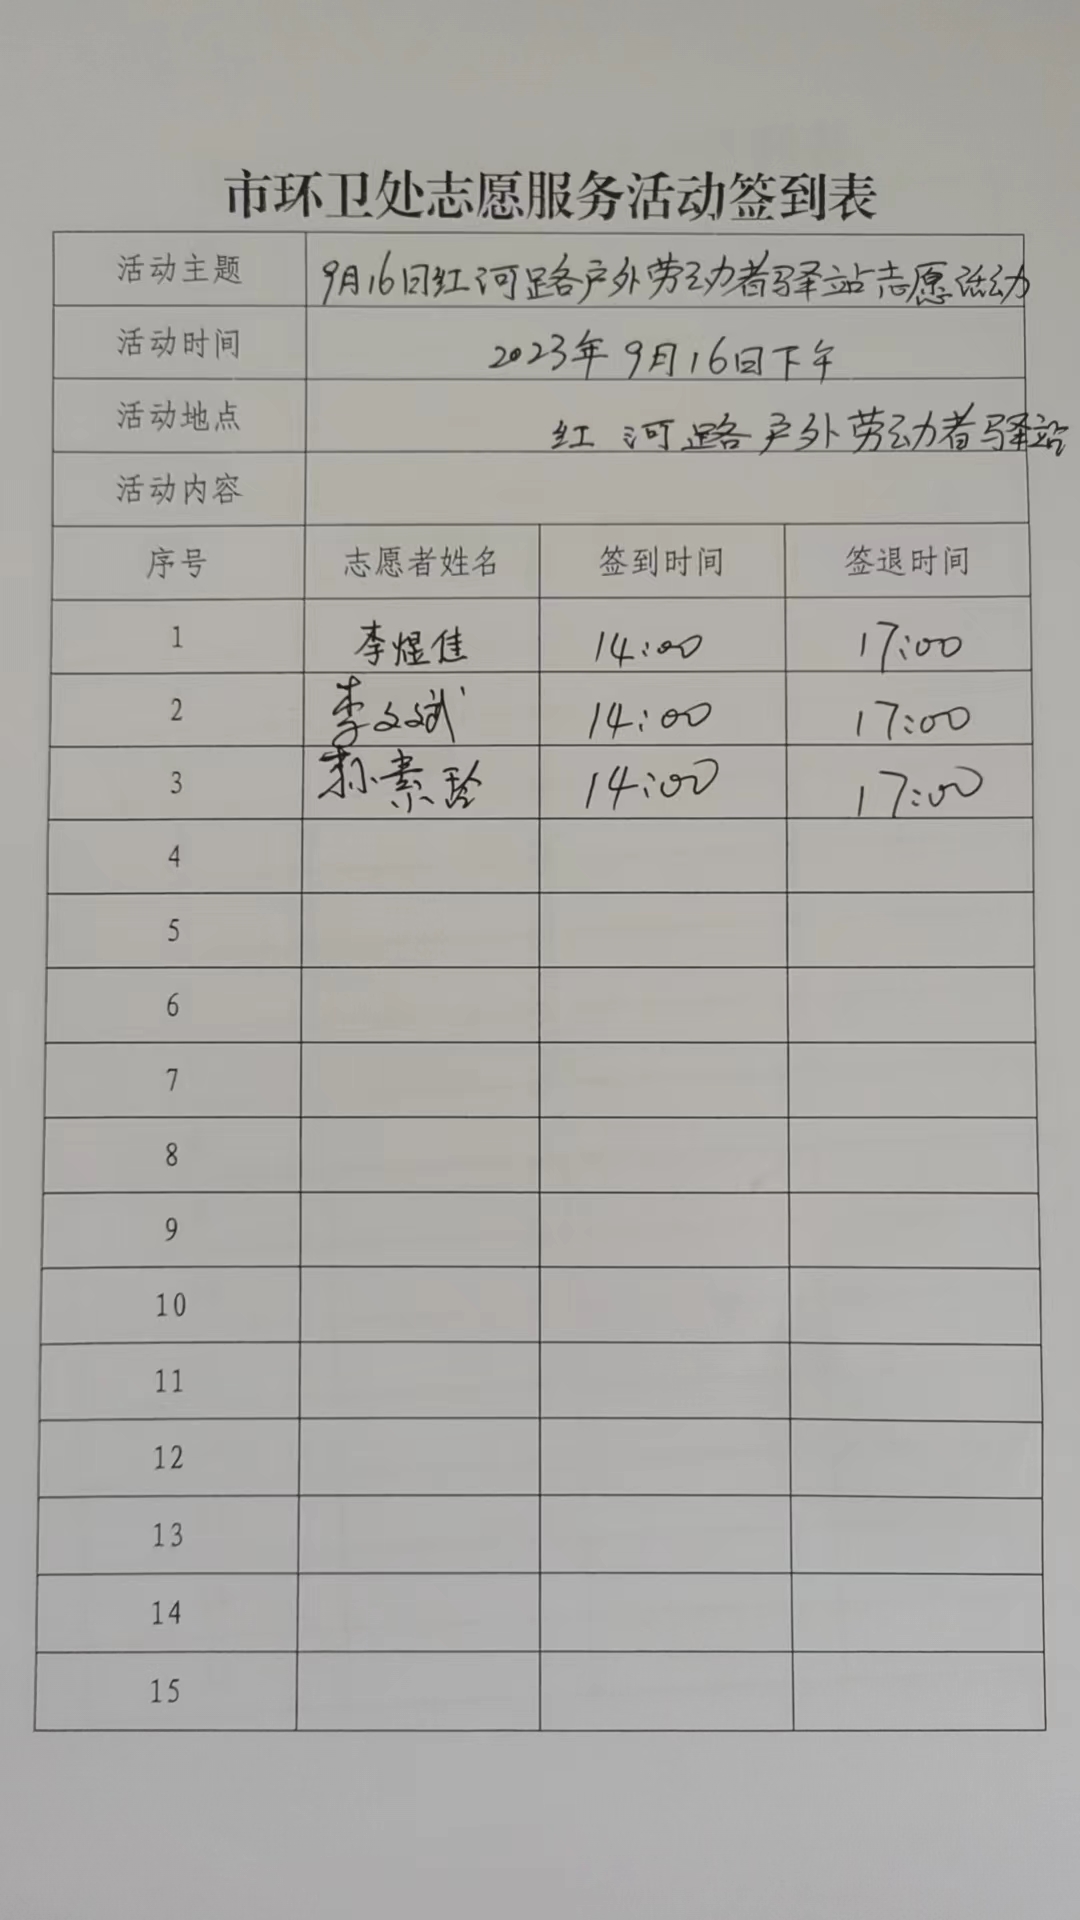 市环卫处志愿服务活动签到表
活动主题 9月16日红河路户外劳动者驿站志愿活动
活动时间 2023年9月16日下午
活动地点 红河路户外劳动者驿站
活动内容
序号 志愿者姓名 签到时间 签退时间
1 李煜佳 14:00 17:00
2 李文斌 14:00 17:00
3 孙素玲 14:00 17:00
4
5
6
7
8
9
10
11
12
13
14
15